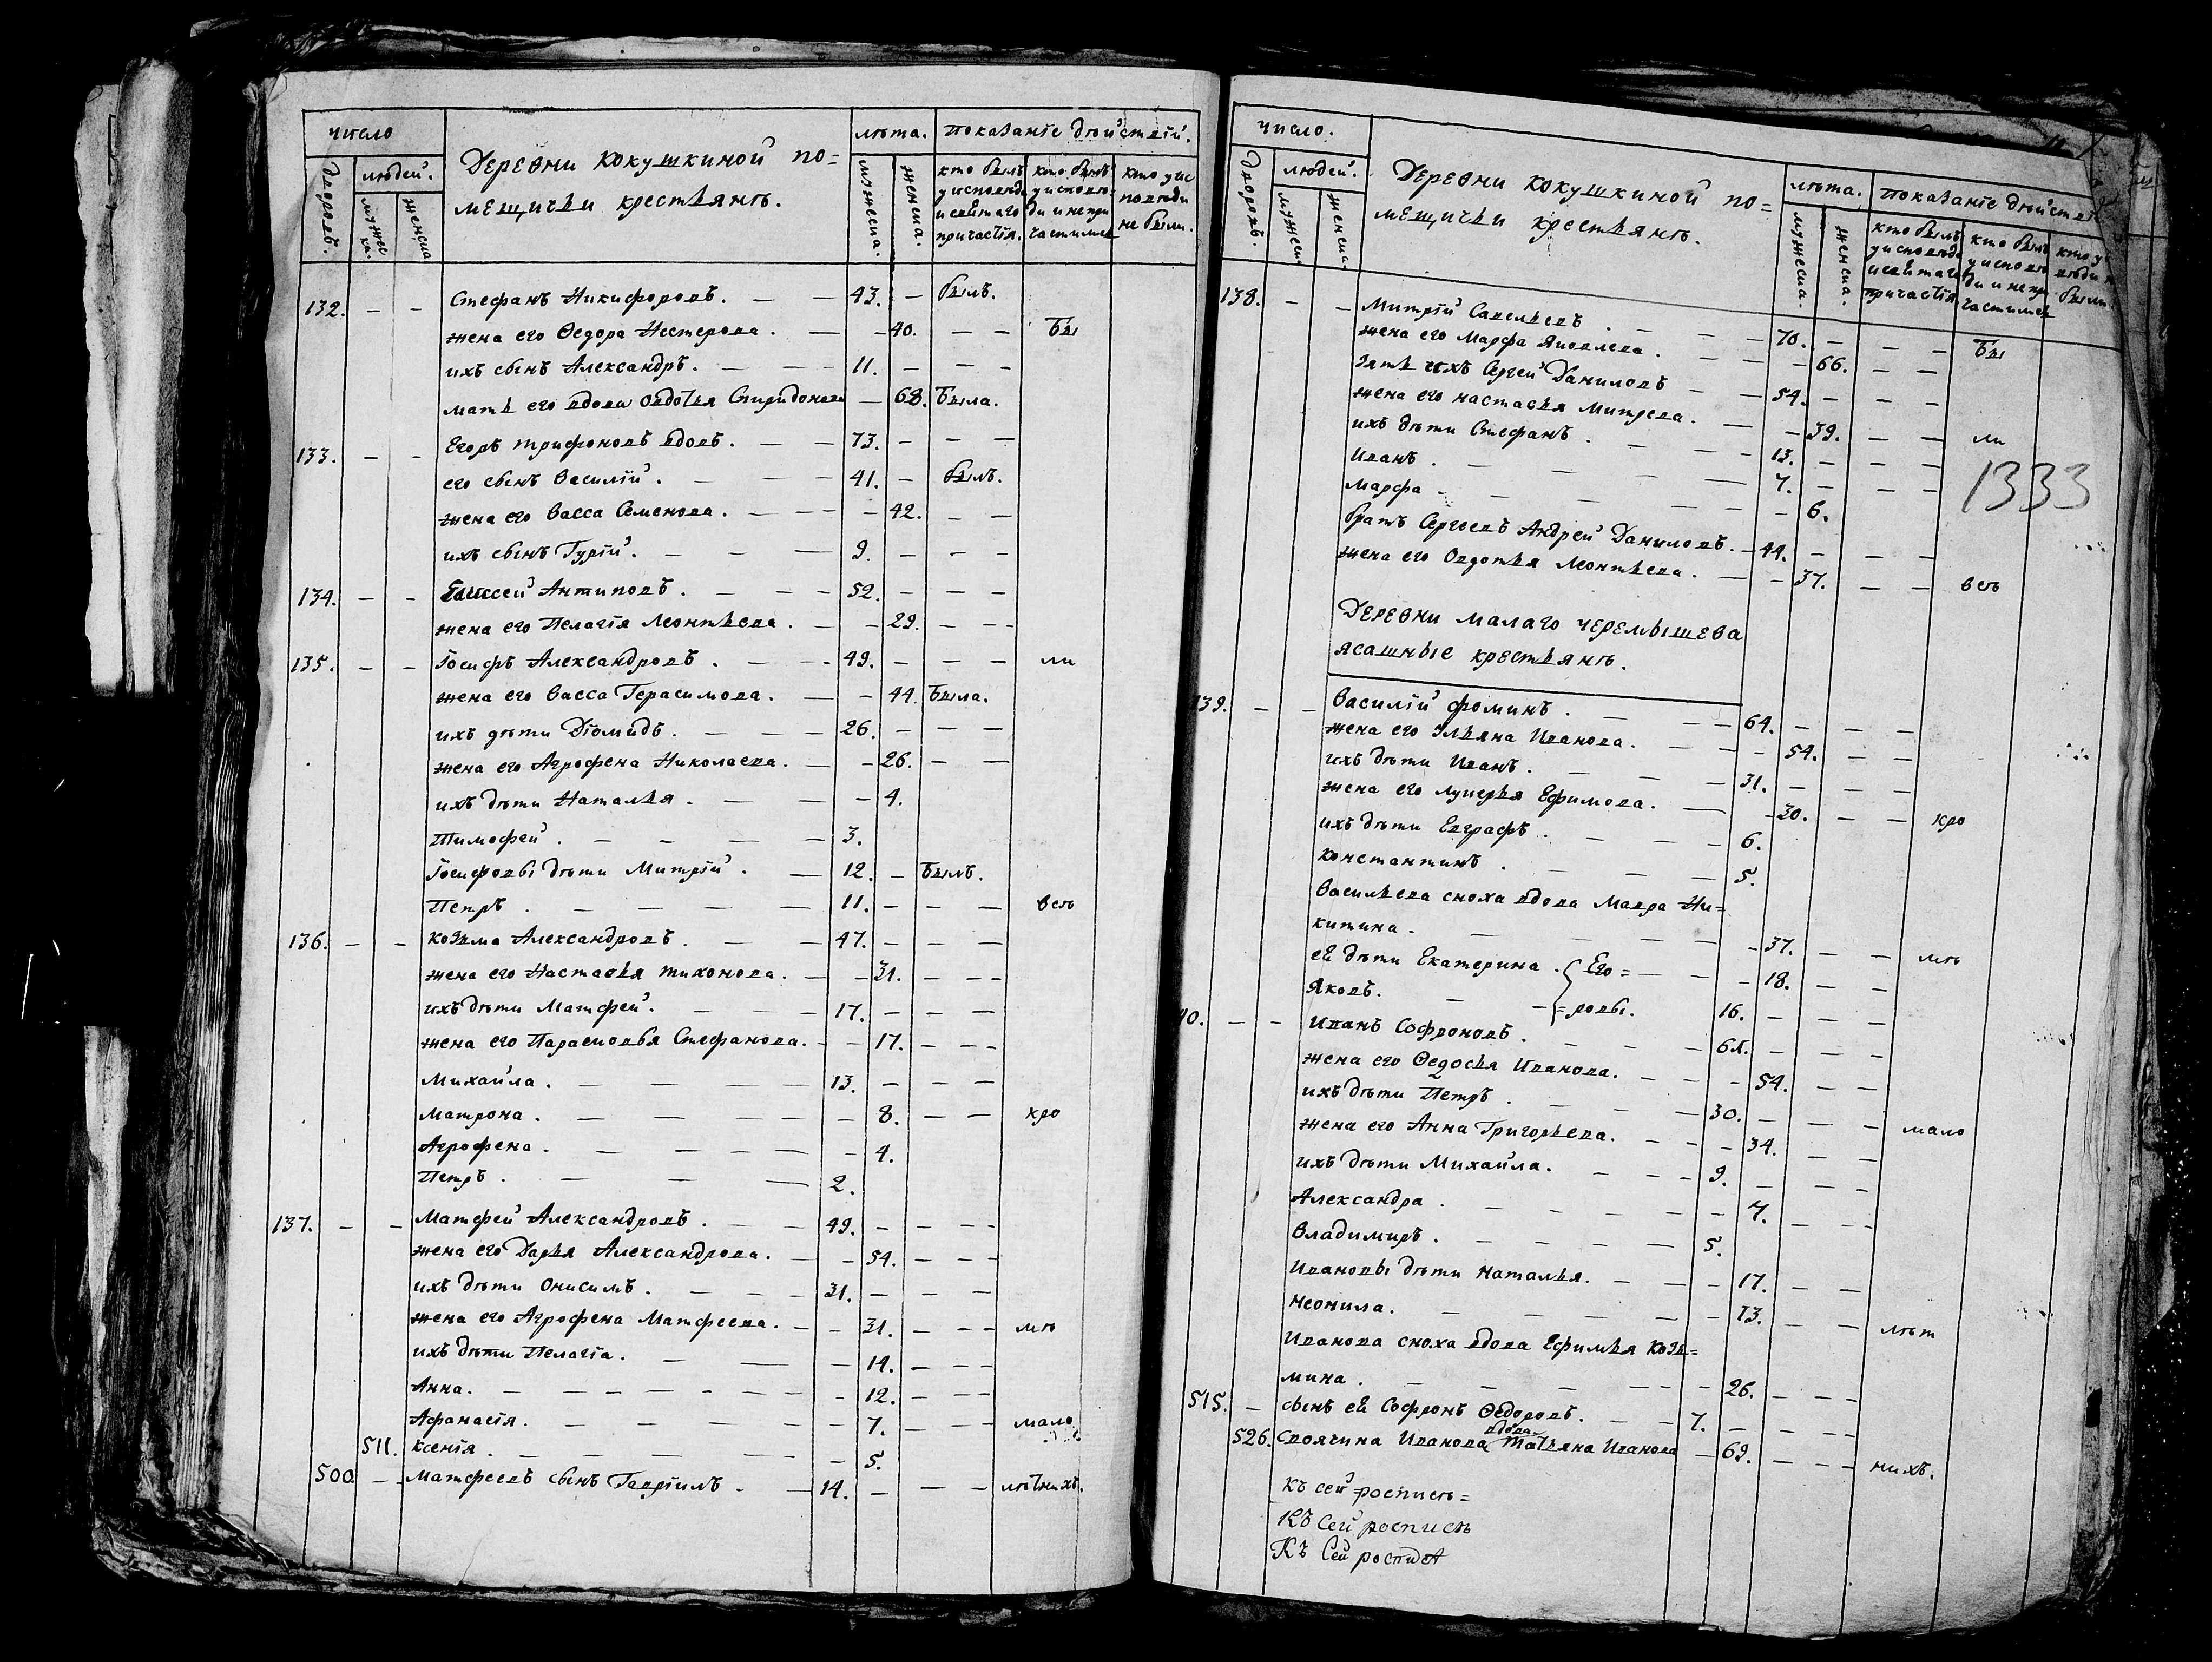 число
лѣта. показанїе дѣйствїй.
Деревни Кокушкиной по=
мещичьи крестьянѣ.
дворовъ. людей.
мужеска. женска
мужеска. женска.
кто былъ у исповѣди и святаго причастїя.
кто былъ у исповѣди и не причастился
кто у исповѣди не были.
132. — — Стефанъ Никифоровъ. — — 43. — былъ.
жена его Ѳедора Нестерова. — — 40. — — Бы
ихъ сынъ Александръ. — — — 11. — — —
мать его вдова Овдотья Спиридонова — 68. Была.
133. — — Егоръ Трифоновъ вдовъ. — — 73. — — —
его сынъ Василїй. — — — 41. — былъ.
жена его Васса Семенова. — — — — 42. — —
ихъ сынъ Гурїй. — — — 9. — — —
134. — — Елисей Антиповъ. — — — 52. — — —
жена его Пелагїя Леонтьева. — — 29. — — —
135. — — Їосифъ Александровъ. — — — 49. — — — ли
жена его Васса Герасимова. — — 44. Была.
ихъ дѣти Дїомидъ. — — — 26. — — —
жена его Агрофена Николаева. — — 26. — —
ихъ дѣти Наталья. — — — 4.
Тимофей. — — — — 3.
Їосифовы дѣти Митрїй. — 12. — Былъ.
Петръ. — — — — 11. — — — всѣ
136. — — Козма Александровъ. — — 47. — — —
жена его Настасья Тихонова. — — 31. — — —
ихъ дѣти Матфей. — — — 17. — — —
жена его Парасковья Стефанова. — — 17. — — —
Михайла. — — — — 13. — — —
Матрона. — — — — 8. — — кро
Агрофена. — — — — — — 4.
Петръ. — — — 2.
137. — — Матфей Александровъ. — — 49. — — — —
жена его Дарья Александрова. — — 54. — — —
ихъ дѣти Онисимъ. — — — 31. — — —
жена его Агрофена Матфеева. — — 31. — — — мѣ
ихъ дѣти Пелагїа. — — — 14. — — —
Анна. — — — — — — — — 12. — — —
Афанасїя. — — — — — 7. — — — мало
511. Ксенїя. — — — — — 5.
500. — — Матфеевъ сынъ Гаврїилъ. — — 14. — — — лѣтнихъ.
число.
лѣта. показанїе дѣйств
Деревни Кокушкиной по=
мещичьи крестьянѣ.
дворовъ. людей.
мужеск женска.
мужеска. женска.
кто былъ у исповѣди и святаго причастїя
кто былъ у исповѣди и не причастился
были.
138. — — Митрїй Савельевъ. — — — 70. — — — Бы
жена его Марфа Яковлева. — — — 66. — —
зять ихъ Сергей Даниловъ — — 54. — — —
жена его Настасья Митрева. — — 39. — — ли
ихъ дѣти Стефанъ. — — — 13. — — —
Иванъ. — — — 7. — — —
1333
Марфа. — — — — — — 6.
братъ Сергеевъ Андрей Даниловъ. — 44. — — —
жена его Овдотья Леонтьева. — — 37. — — всѣ
Деревни Малаго Черемышева
ясашные крестьянѣ.
139. — — Василїй Фоминъ. — — — 64. — — —
жена его Ульяна Иванова. — — — 54. — —
ихъ дѣти Иванъ. — — — 31. — — —
жена его Лукерья Ефимова. — — 30. — — кро
ихъ дѣти Евграфъ. — — — — 6.
Константинъ. — — — 5.
Васильева сноха вдова Мавра Ни=
китина. — — — — — — 37. — — мѣ
ей дѣти Екатерина. Его= — — — 18. — —
Яковъ. — — =ровы. 16. — — —
40. — — Иванъ Софроновъ. — — — 61. — — —
жена его Ѳедосья Иванова. — — — 54. — —
ихъ дѣти Петръ. — — — 30. — — — мало
жена его Анна Григорьева. — — — 34. — —
ихъ дѣти Михайла. — — — 9. — — —
Александра. — — — — — — 7. — — —
Владимиръ. — — — — — 5.
Ивановы дѣти Наталья. — — — 17. — —
Неонила. — — — — — — 13. — — лѣт
Иванова сноха вдова Ефимья Козь=
мина. — — — — — — 26. — — —
515. — сынъ ей Софронъ Ѳедоровъ. — — 7. — — — —
вдова
526. Своячина Иванова Татьяна Иванова — 69. — — — нихъ.
Къ сей росписѣ=
Къ Сей росписѣ
Къ Сей